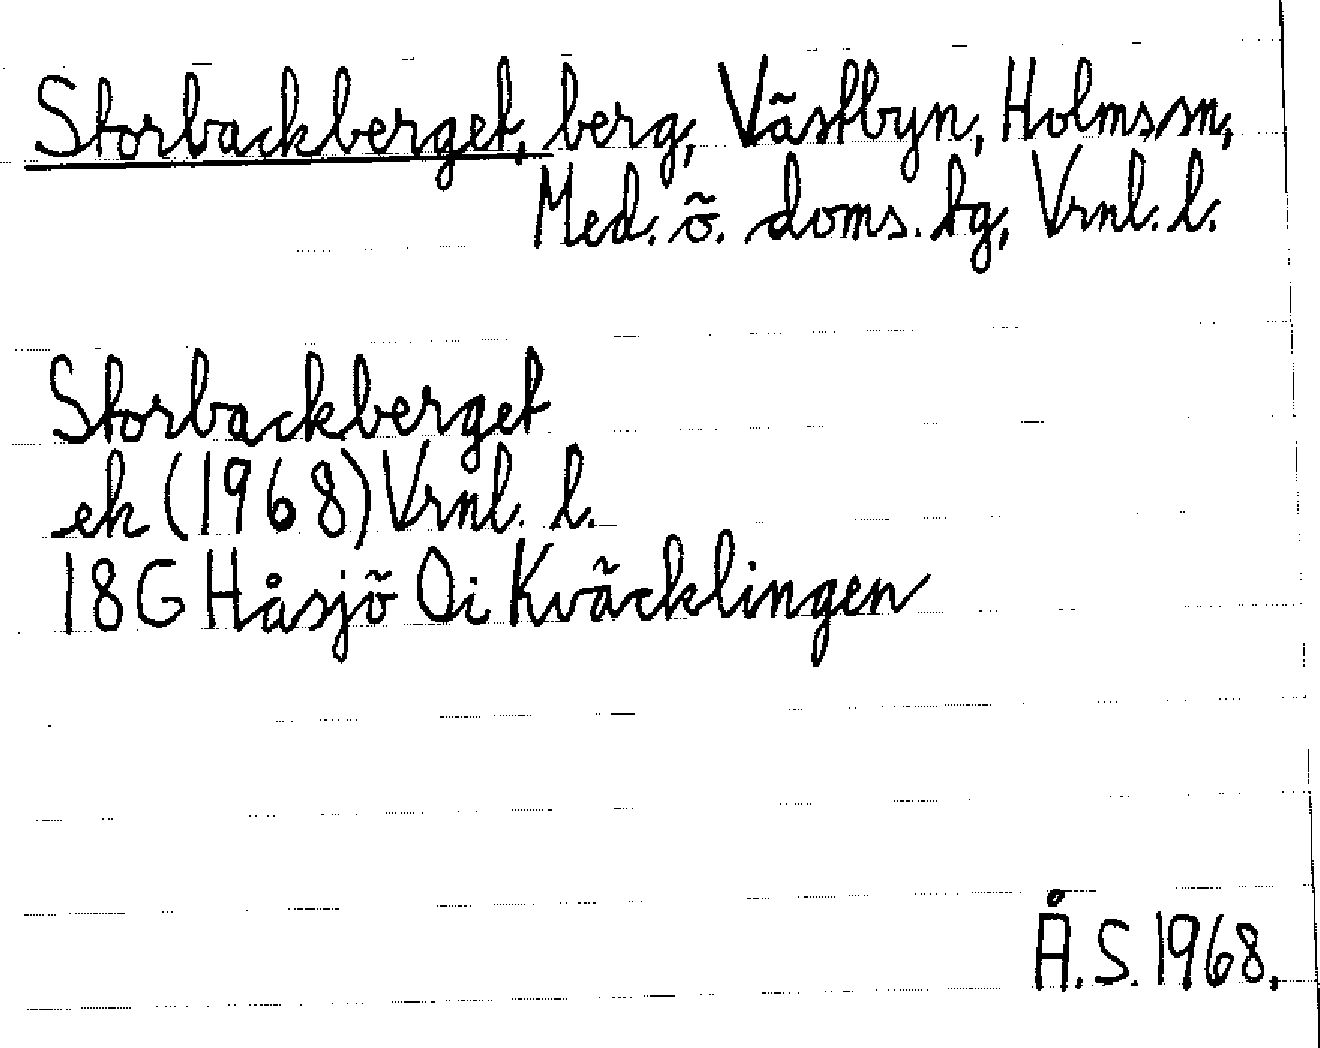 Storbackberget, berg, Västbyn, Holms sn,
Med. ö. doms. tg, Vrnl. l.
Storbackberget
ek (1968) Vrnl. l.
18G Håsjö Oi Kväcklingen
Å. S. 1968.